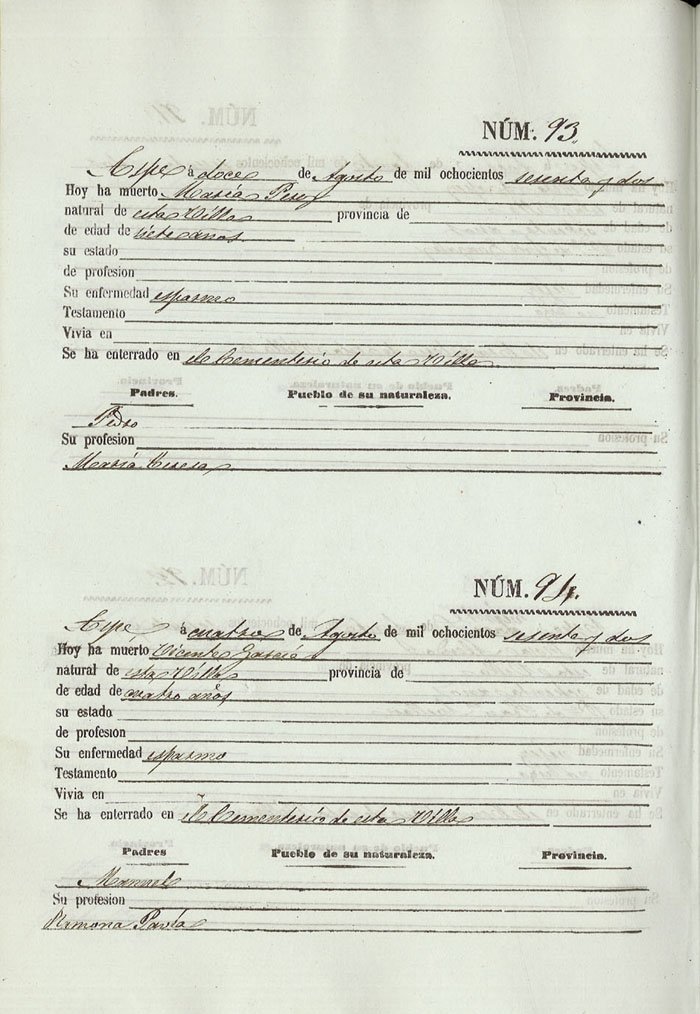 NÚM. 93.
Aspe á doce de Agosto de mil ochocientos sesenta y dos
Hoy ha muerto Maria Perez
natural de esta Villa provincia de
de edad de siete años
su estado
de profesion
Su enfermedad espasmo
Testamento
Vivia en
Se ha enterrado en el Cementerio de esta Villa
Padres. Pueblo de su naturaleza. Provincia.
Pedro
Su profesion
Maria Teresa
NÚM. 94.
Aspe á cuatro de Agosto de mil ochocientos sesenta y dos
Hoy ha muerto Vicente Garcia
natural de esta Villa provincia de
de edad de cuatro años
su estado
de profesion
Su enfermedad espasmo
Testamento
Vivia en
Se ha enterrado en el Cementerio de esta Villa
Padres Pueblo de su naturaleza. Provincia.
Manuel
Su profesion
Ramona Pavía